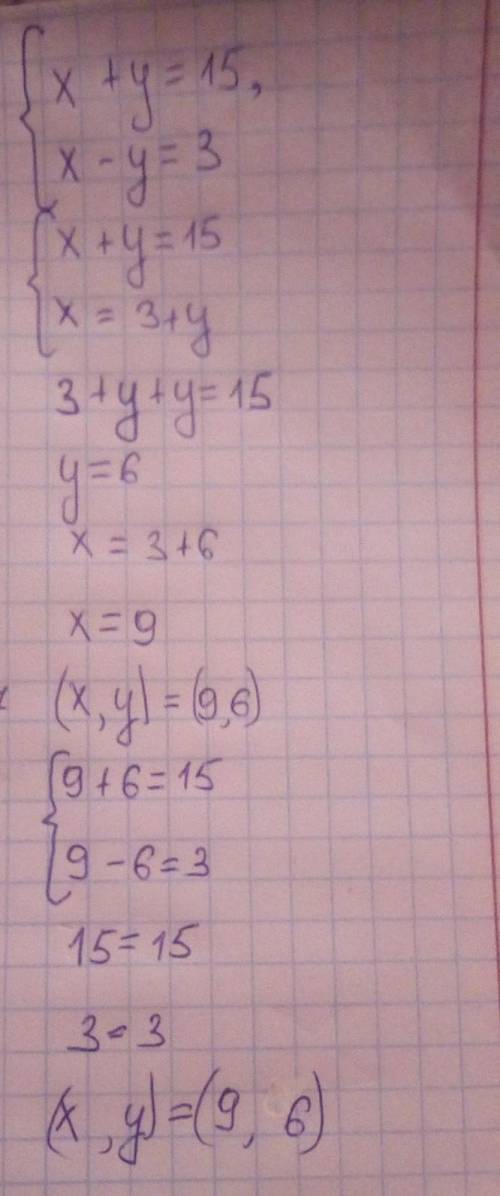 x + y = 15,
x - y = 3
x + y = 15
x = 3 + y
3 + y + y = 15
y = 6
x = 3 + 6
x = 9
(x, y) = (9, 6)
9 + 6 = 15
9 - 6 = 3
15 = 15
3 = 3
(x, y) = (9, 6)